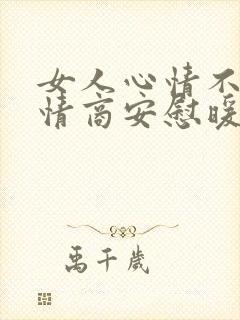 女人心情不
情商安慰暖
禹千岁